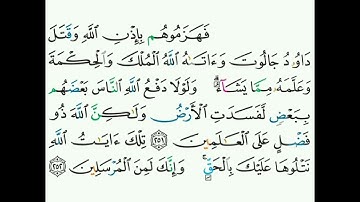 فَهَزَمُوهُم بِإِذْنِ ٱللَّهِ وَقَتَلَ
دَاوُۥدُ جَالُوتَ وَءَاتَىٰهُ ٱللَّهُ ٱلْمُلْكَ وَٱلْحِكْمَةَ
وَعَلَّمَهُۥ مِمَّا يَشَآءُ ۗ وَلَوْلَا دَفْعُ ٱللَّهِ ٱلنَّاسَ بَعْضَهُم
بِبَعْضٍ لَّفَسَدَتِ ٱلْأَرْضُ وَلَٰكِنَّ ٱللَّهَ ذُو
فَضْلٍ عَلَى ٱلْعَٰلَمِينَ ﴿٢٥١﴾ تِلْكَ ءَايَٰتُ ٱللَّهِ
نَتْلُوهَا عَلَيْكَ بِٱلْحَقِّ ۚ وَإِنَّكَ لَمِنَ ٱلْمُرْسَلِينَ ﴿٢٥٢﴾